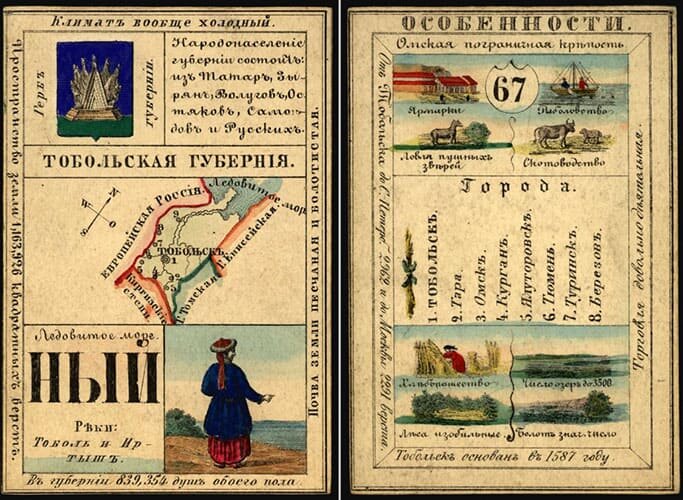 Климатъ вообще холодный.
Пространство земли 1,163,926 квадратныхъ верстъ.
Гербъ
губерніи.
Народонаселеніе
губерніи состоитъ:
изъ Татаръ, Зы-
рянъ, Вогуловъ, Ос-
тяковъ, Само-
довъ и Русскихъ.
ТОБОЛЬСКАЯ ГУБЕРНІЯ.
N
W
O
S
ЕВРОПЕЙСКАЯ РОССІЯ
Ледовитое мор.
Г. Енисейская.
ТОБОЛЬСКЪ
Г. Томская
Киргизская
степь.
Почва земли песчаная и болотистая.
Ледовитое море.
НЫЙ
Рѣки:
Тоболь и Ир-
тышъ.
Въ губерніи 839,354 душъ обоего пола.
ОСОБЕННОСТИ.
Омская пограничная крѣпость
67
Ярмарки
Рыболовство
Ловля пушныхъ
звѣрей
Скотоводство
Отъ Тобольска до С. Петерб. 2962 и до Москвы 2291 верста.
Города.
1. ТОБОЛЬСКЪ.
2. Тара.
3. Омскъ.
4. Курганъ.
5. Ялуторовскъ.
6. Тюмень.
7. Туринскъ.
8. Березовъ.
Торговля довольно дѣятельная.
Хлѣбопашество
Число озеръ до 3500
Лѣса изобильные.
Болотъ знач. число
Тобольскъ основанъ въ 1587 году.